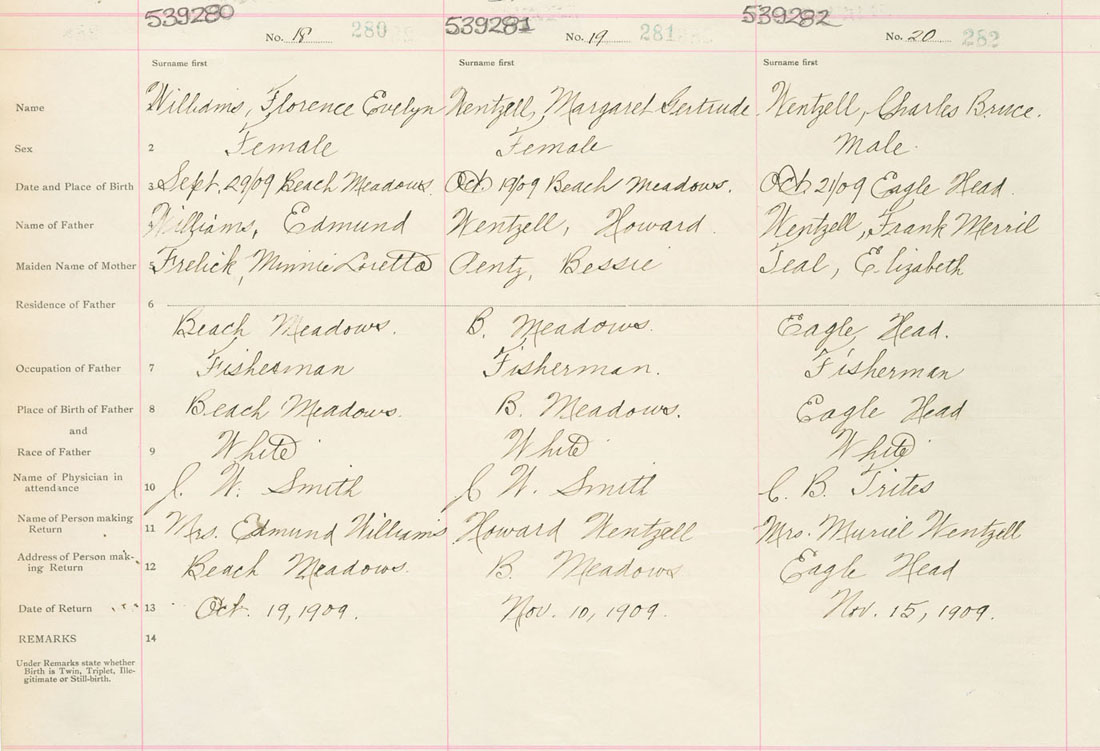 539280 539281 539282
No. 18 280 No. 19 281 No. 20 282
Surname first Surname first Surname first
Name Williams, Florence Evelyn Wentzell, Margaret Gertrude Wentzell, Charles Bruce.
Sex 2 Female Female Male.
Date and Place of Birth 3 Sept. 29/09 Beach Meadows. Oct. 19/09 Beach Meadows. Oct. 21/09 Eagle Head.
Name of Father 4 Williams, Edmund Wentzell, Howard. Wentzell, Frank Merril
Maiden Name of Mother 5 Frelick, Minnie Loretta Bessie Teal, Elizabeth
Residence of Father 6
Beach Meadows. B. Meadows. Eagle Head.
Occupation of Father 7 Fisherman Fisherman. Fisherman
Place of Birth of Father 8 Beach Meadows. B. Meadows. Eagle Head
and
Race of Father 9 White White White
Name of Physician in
attendance 10 J. W. Smith J. W. Smith C. B. Trites
Name of Person making
Return 11 Mrs. Edmund Williams Howard Wentzell Mrs. Muriel Wentzell
Address of Person mak-
ing Return 12 Beach Meadows. B. Meadows Eagle Head
Date of Return 13 Oct. 19, 1909. Nov. 10, 1909. Nov. 15, 1909.
REMARKS 14
Under Remarks state whether
Birth is Twin, Triplet, Ille-
gitimate or Still-birth.